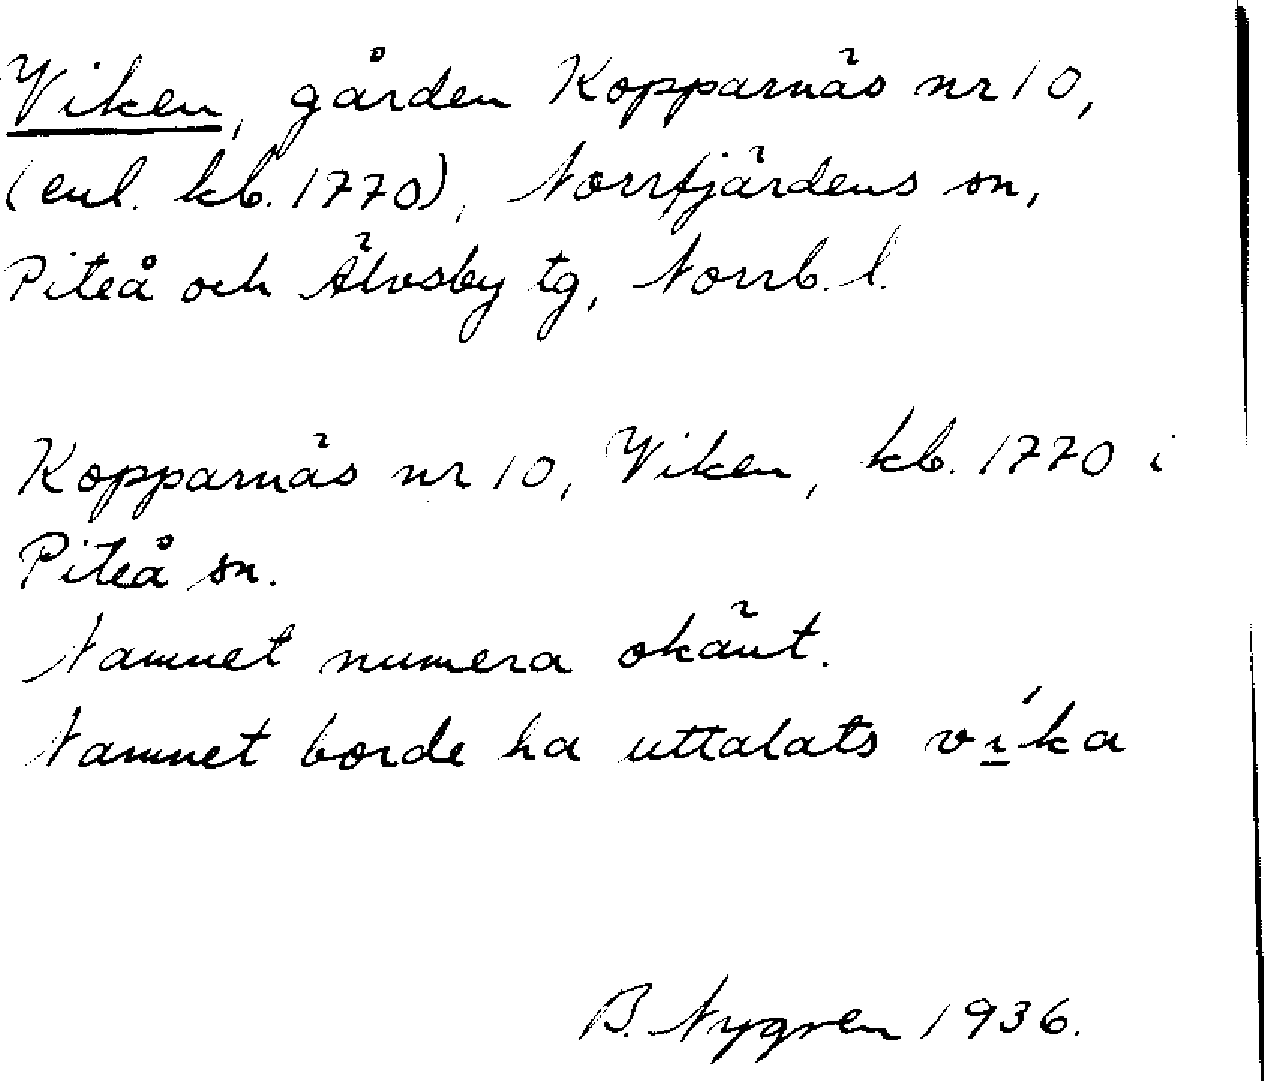 Viken, gården Kopparnäs nr 10,
(enl. kb. 1770), Norrfjärdens sn,
Piteå och Älvsby tg, Norrb. l.
Kopparnäs nr 10, Viken, kb. 1770 i
Piteå sn.
Namnet numera okänt.
Namnet borde ha uttalats ví̲ka
B. Nygren 1936.